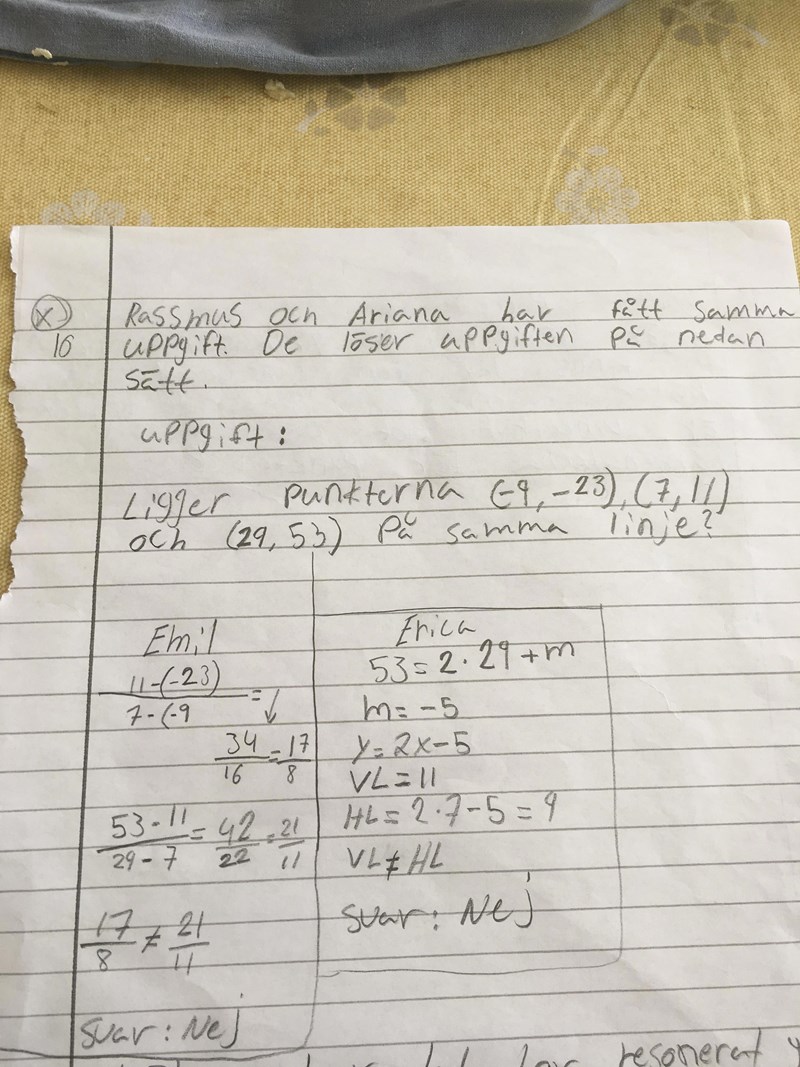 X) Rassmus och Ariana har fått samma
16 uppgift. De löser uppgiften på nedan
sätt.
uppgift:
Ligger punkterna (-9,-23), (7,11)
och (29,53) på samma linje?
Emil
11-(-23)
7-(-9
= ↓
34/16 = 17/8
53-11/29-7 = 42/22 = 21/11
17/8 ≠ 21/11
Svar: Nej
Erica
53=2·29+m
m=-5
y=2x-5
VL=11
HL=2·7-5=9
VL≠HL
Svar: Nej
har resonerat